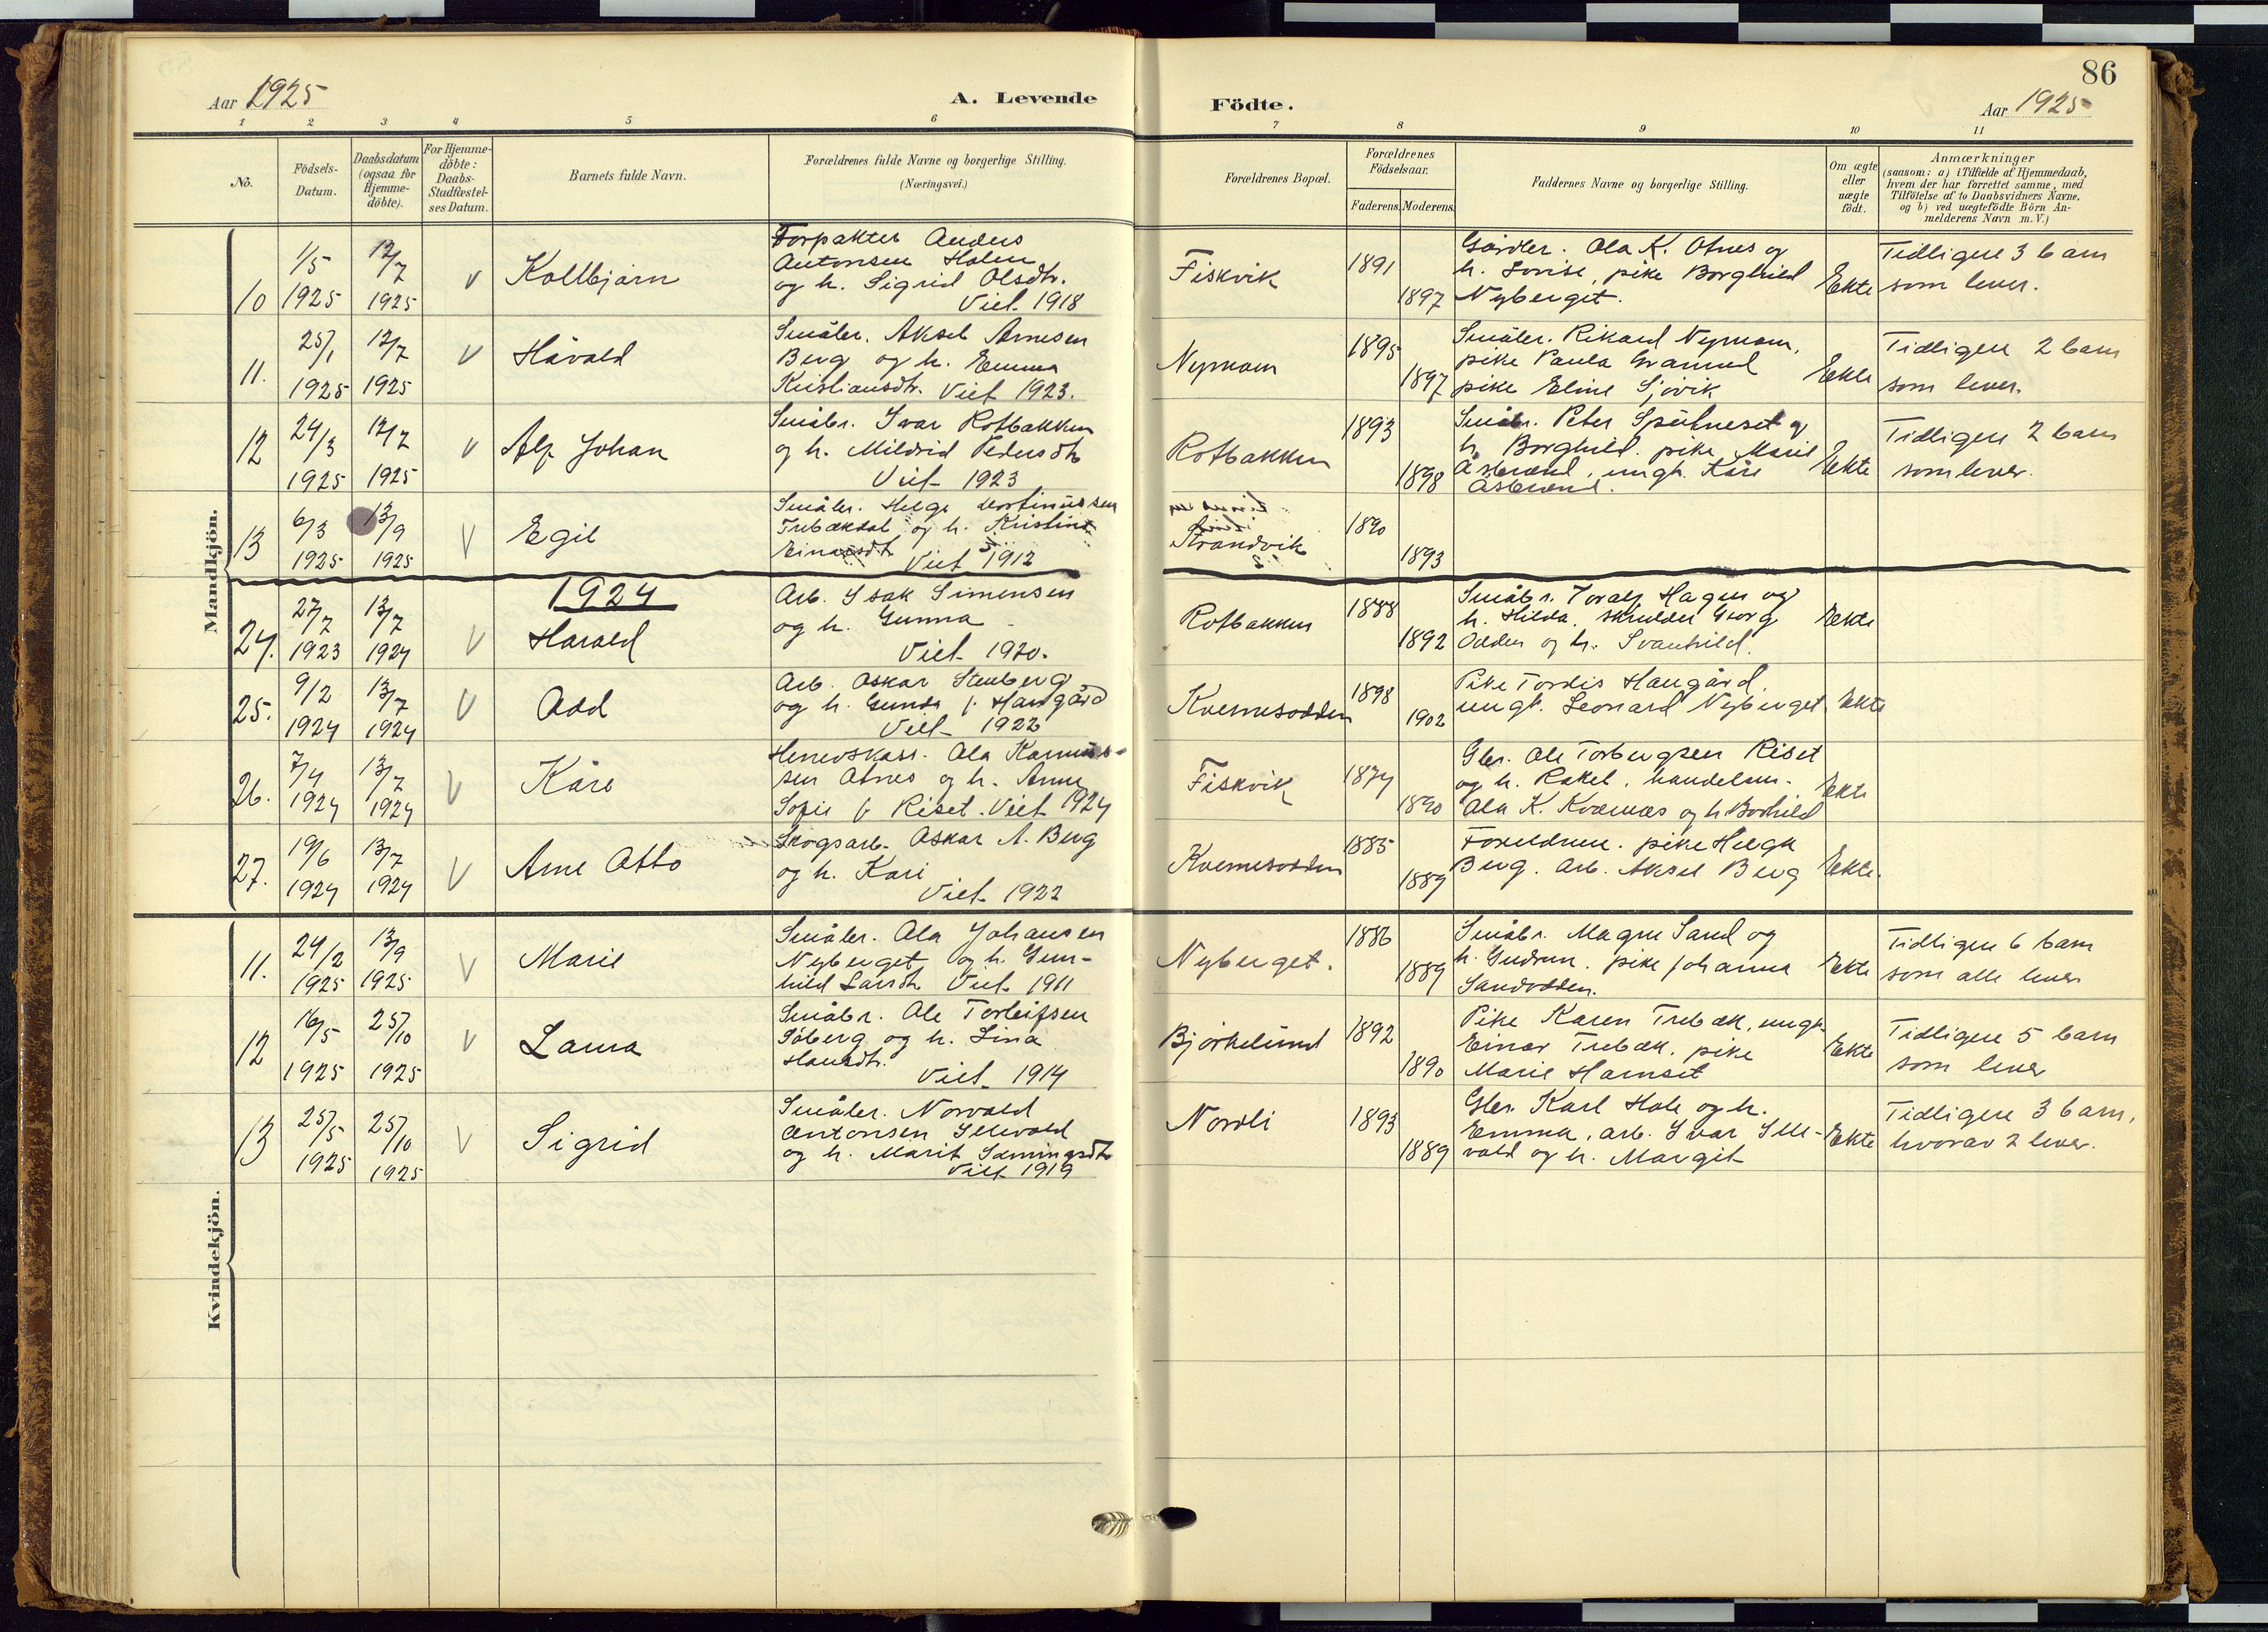 86
Aar 1925
A. Levende
Födte.
Aar 1925
1 2 3 4 5 6 7 8 9 10 11
No.
Födsels-
Datum.
Daabsdatum
(ogsaa for
Hjemme-
döbte).
For Hjemme-
döbte:
Daabs-
Stadfæstel-
ses Datum.
Barnets fulde Navn.
Forældrenes fulde Navne og borgerlige Stilling.
(Næringsvei.)
Forældrenes Bopæl.
Forældrenes
Födselsaar.
Faderens. Moderens.
Faddernes Navne og borgerlige Stilling.
Om ægte
eller
uægte
födt.
Anmærkninger
(saasom: a) i Tilfælde af Hjemmedaab,
hvem der har forrettet samme, med
Tilföielse af to Daabsvidners Navne,
og b) ved uægtefödte Börn An-
melderens Navn m. V.)
Mandkjön.
10
1/5
1925
12/7
1925
v
Kollbjørn
Forpakter Anders
Antonsen Holen
og h. Sigrid Olsdtr.
Viet 1918
Fiskvik
1891
1897
Gårdbr. Ola K. Otnes og
h. Lovise, pike Borghild
Nyberget.
Ekte
Tidligere 3 barn
som lever.
11.
25/1
1925
12/7
1925
v
Håvald
Småbr. Aksel Arnesen
Berg og h. Emma
Kristiansdtr. Viet 1923.
Nymoen
1895
1897
Småbr. Rikard Nymoen,
pike Paula
pike Eline Sjøvik
Ekte
Tidligere 2 barn
som lever.
12
24/3
1925
12/7
1925
v
Alf Johan
Småbr. Ivar Rotbakken
og h. Mildrid Pedersdtr
Viet 1923
Rotbakken
1893
1898
Småbr. Peter og
h. Borghild. pike Marie
ungk. Kåre
Ekte
Tidligere 2 barn
som lever.
13
6/3
1925
13/9
1925
v
Egil
Småbr. Helge
Trebækdal og h. Kristine
Einarsdt
Viet 1912
Strandvik
1890
1893
1924
24.
27/7
1923
13/7
1924
v
Harald
Arb. Isak Simensen
og h. Gunna
Viet 1920.
Rotbakken
1888
1892
Småbr. Toralf Hagen og
h. Hilda. Georg
Odden og h. Svanhild.
Ekte
25.
9/2
1924
13/7
1924
v
Odd
Arb. Oskar Stenberg
og h. Gunda f. Haugård
Viet 1922
Kvernesodden
1898
1902
Pike Tordis Haugård,
ungk. Leonard Nyberget
Ekte
26.
7/4
1924
13/7
1924
v
Kåre
Herredskass. Ola
sen Otnes og h. Anne
Sofie f. Riset. Viet 1924
Fiskvik
1874
1890
Gbr. Ole Torbergsen Riset
og h. Rakel, handelsm.
Ola K. Kværnæs og h. Borhild
Ekte
27.
19/6
1924
13/7
1924
v
Arne Otto
Skogsarb. Oskar A. Berg
og h. Kari
Viet 1922
Kvernesodden
1885
1889
Foreldrene. pike Helga
Berg. Arb. Aksel Berg
Ekte.
Kvindekjön.
11.
24/2
1925
13/9
1925
v
Marie
Småbr. Ola Johansen
Nyberget og h. Gun-
hild Larsdtr Viet 1911
Nyberget.
1886
1889
Småbr. Magne Sand og
h. Gudrun. pike Johanna
Sandodden.
Ekte
Tidligere 6 barn
som alle lever
12
16/5
1925
25/10
1925
v
Laura
Småbr. Ole Torleifsen
Søberg og h. Lina
Hansdtr.
Viet 1914
Bjørkelund
1892
1890
Pike Karen Trebæk, ungk.
Einar Trebæk. pike
Marie Hamset
Ekte
Tidligere 5 barn
som lever
13
25/5
1925
25/10
1925
v
Sigrid
Småbr. Norvald
Antonsen Illevold
og h. Marit Sæmingsdtr
Viet 1919
Nordli
1893
1889
Gbr. Karl Hole og h.
Emma, arb. Ivar Ille-
vold og h. Margit
Ekte
Tidligere 3 barn,
hvorav 2 lever.